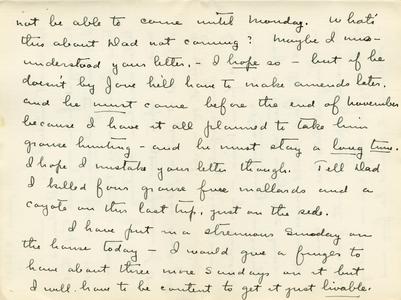 not be able to come until Monday. What's
this about Dad not coming? Maybe I mis-
understood your letter. - I hope so - but if he
doesn't by Jove he'll have to make amends later.
and he must come before the end of November
because I have it all planned to take him
grouse hunting - and he must stay a long time.
I hope I mistake your letter though. Tell Dad
I killed four grouse five mallards and a
coyote on this last trip, just on the side.
I have put in a strenuous Sunday on
the house today - I would give a finger to
have about three more Sundays on it but
I will have to be content to get it just livable.